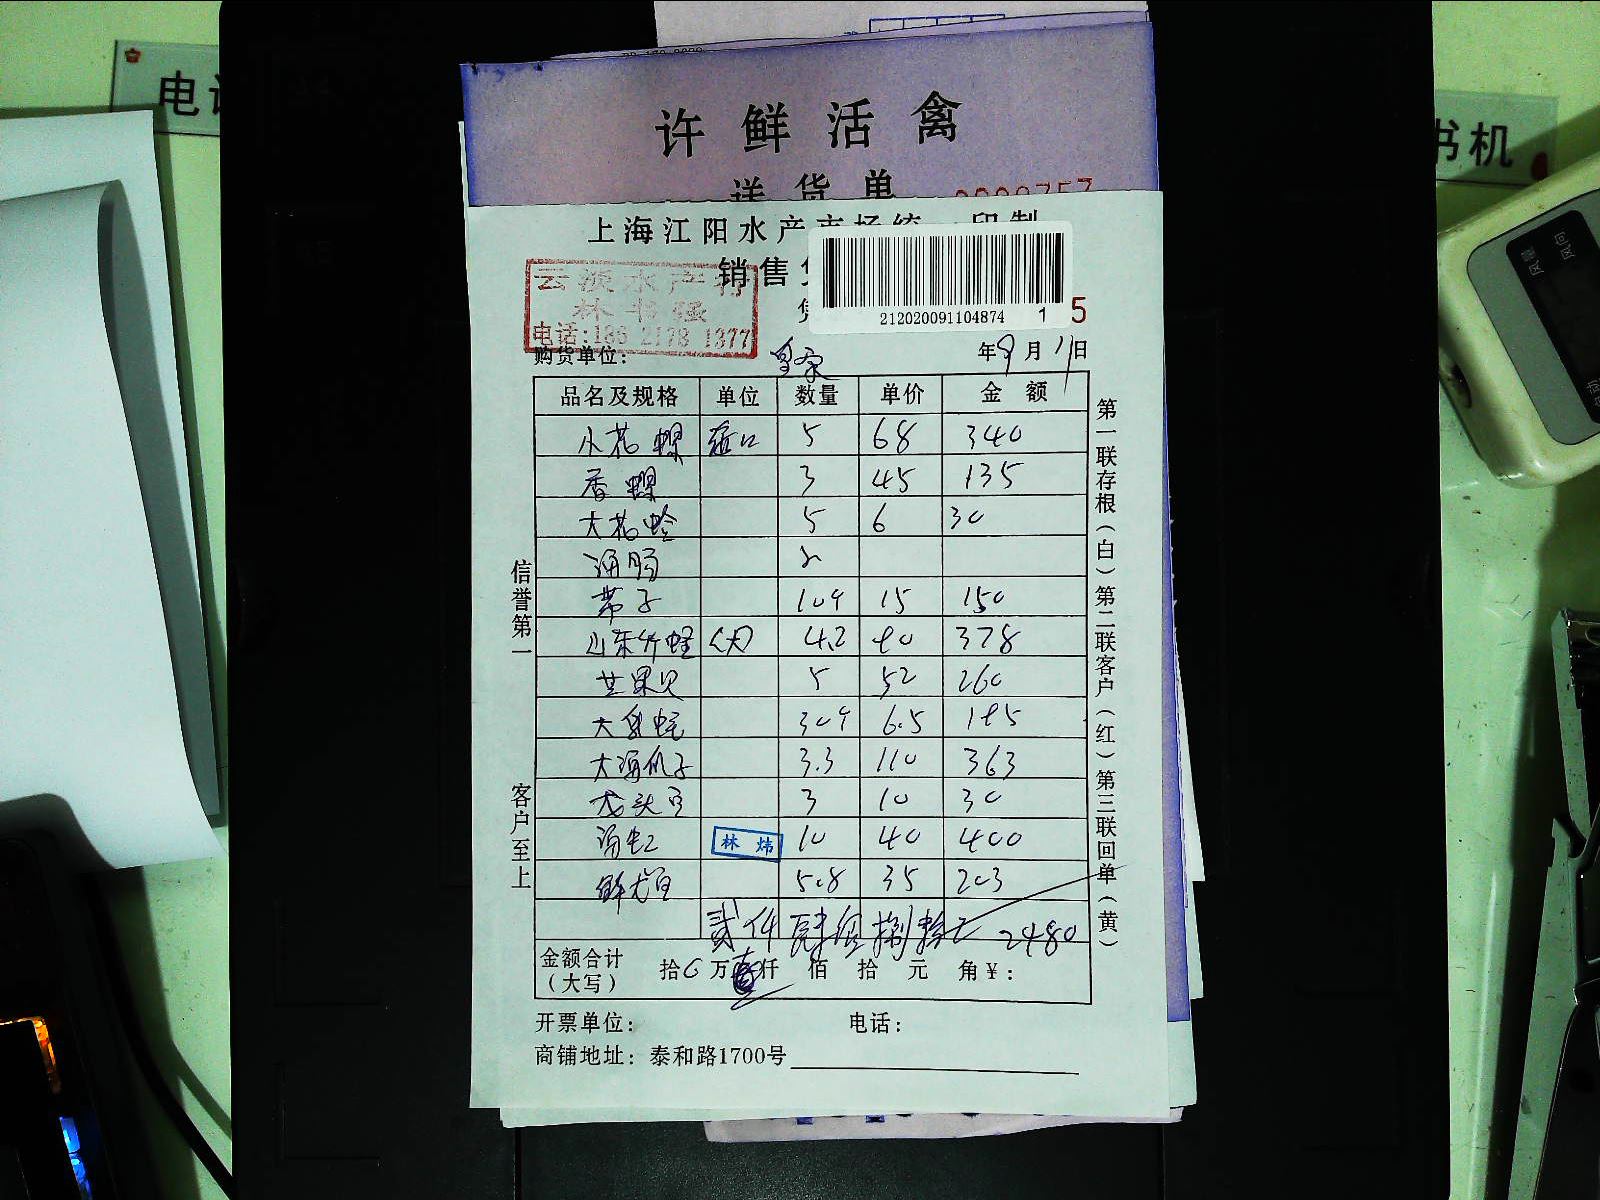 电话
书机
风量
风向
许鲜活禽
送货单
上海江阳水产市场统一印制
销售
云淡水产行
林书强
电话:186 2178 1377
212020091104874 1
5
购货单位:
年9月11日
品名及规格 单位 数量 单价 金额
小花螺 进口 5 68 340
香螺 3 45 135
大花蛤 5 6 30
海肠 2
带子 10个 15 150
山东竹蛏 (大) 4.2 90 378
芒果贝 5 52 260
大 30个 6.5 195
大海瓜子 3.3 110 363
龙头 3 10 30
10 40 400
5.8 35 203
林炜
贰仟肆佰捌拾元 2480
金额合计
(大写) 拾 万 仟 佰 拾 元 角 ¥:
开票单位: 电话:
商铺地址: 泰和路1700号
信誉第一
客户至上
第一联存根(白)第二联客户(红)第三联回单(黄)